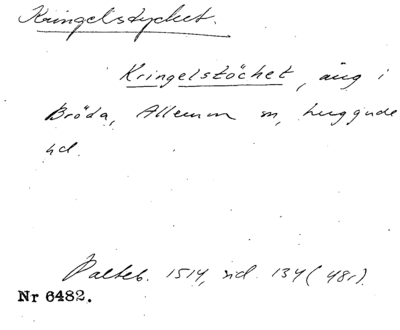 Kringelstycket.
Kringelstöcket, äng i
Bröda, Allerum sn, Luggude
hd.
Palteb. 1514, sid. 134 (48r).
Nr 6482.